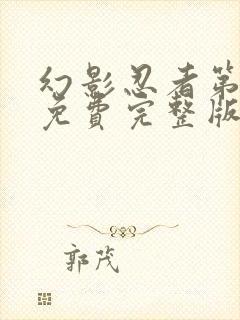 幻影忍者第
免費完整版
郭茂